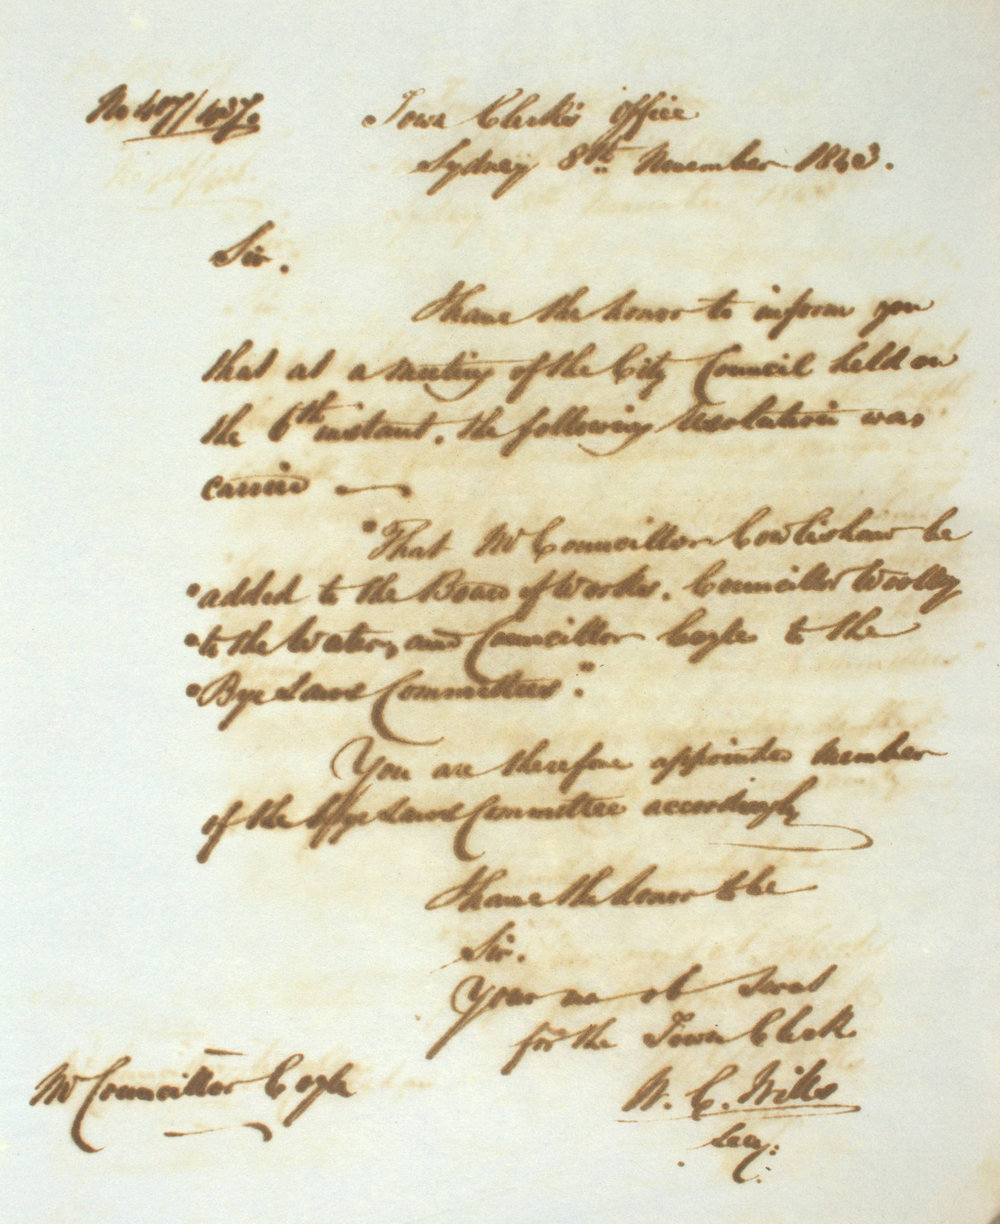 No 407/437.
Town Clerk's Office
Sydney 8th November 1843.
Sir.
I have the honor to inform you
that at a meeting of the City Council held on
the 6th instant, the following Resolution was
carried —
"That Mr Councillor Cowlishaw be
"added to the Board of Works. Councillor Worlley
"to the Water, and Councillor Coyle to the
"Bye Laws Committees."
You are therefore appointed Member
of the Bye Laws Committee accordingly
I have the honor to be
Sir.
Your mo ob Servt
for the Town Clerk
W. C. Wills
Secy:
Mr Councillor Coyle